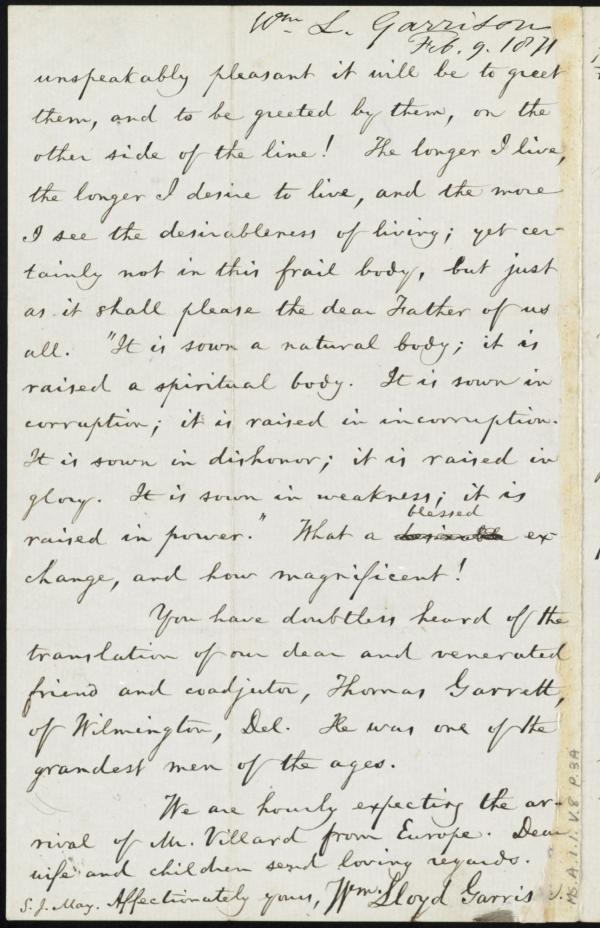 Wm. L. Garrison
Feb. 9. 1871
unspeakably pleasant it will be to greet
them, and to be greeted by them, on the
other side of the line! The longer I live,
the longer I desire to live, and the more
I see the desirableness of living; yet cer-
tainly not in this frail body, but just
as it shall please the dear Father of us
all. "It is sown a natural body; it is
raised a spiritual body. It is sown in
corruption; it is raised in incorruption.
It is sown in dishonor; it is raised in
glory. It is sown in weakness; it is
blessed
raised in power." What a desirable ex-
change, and how magnificent!
You have doubtless heard of the
translation of our dear and venerated
friend and coadjutor, Thomas Garrett,
of Wilmington, Del. He was one of the
grandest men of the ages.
We are hourly expecting the ar-
rival of Mr. Villard from Europe. Dear
wife and children send loving regards.
S. J. May. Affectionately yours, Wm. Lloyd Garris
Ms. A. 1. 1. V. 8 P. 3A